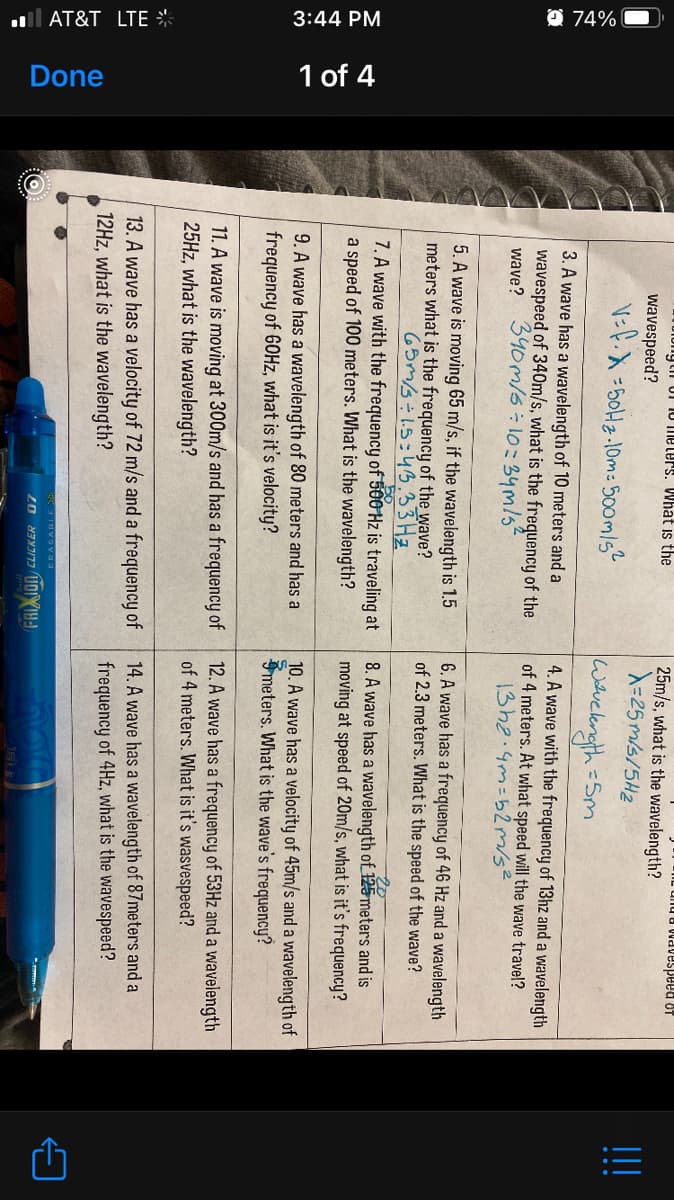 AT&T LTE
3:44 PM
74%
Done
1 of 4
meters. What is the
wavespeed?
V=f·λ=50Hz·10m=500m/s²
wavespeed of
25m/s, what is the wavelength?
λ=25m/s/5Hz
wavelength=5m
3. A wave has a wavelength of 10 meters and a
wavespeed of 340m/s, what is the frequency of the
wave? 340m/s÷10=34m/s²
4. A wave with the frequency of 13hz and a wavelength
of 4 meters. At what speed will the wave travel?
13hz·4m=52m/s²
5. A wave is moving 65 m/s, if the wavelength is 1.5
meters what is the frequency of the wave?
65m/s÷1.5=43.33Hz
6. A wave has a frequency of 46 Hz and a wavelength
of 2.3 meters. What is the speed of the wave?
50
7. A wave with the frequency of 500 Hz is traveling at
a speed of 100 meters. What is the wavelength?
20
8. A wave has a wavelength of 125 meters and is
moving at speed of 20m/s, what is it's frequency?
9. A wave has a wavelength of 80 meters and has a
frequency of 60Hz, what is it's velocity?
10. A wave has a velocity of 45m/s and a wavelength of
5
9 meters. What is the wave's frequency?
11. A wave is moving at 300m/s and has a frequency of
25Hz, what is the wavelength?
12. A wave has a frequency of 53Hz and a wavelength
of 4 meters. What is it's wasvespeed?
13. A wave has a velocity of 72 m/s and a frequency of
12Hz, what is the wavelength?
14. A wave has a wavelength of 87meters and a
frequency of 4Hz, what is the wavespeed?
ERASABLE
FRIXION CLICKER